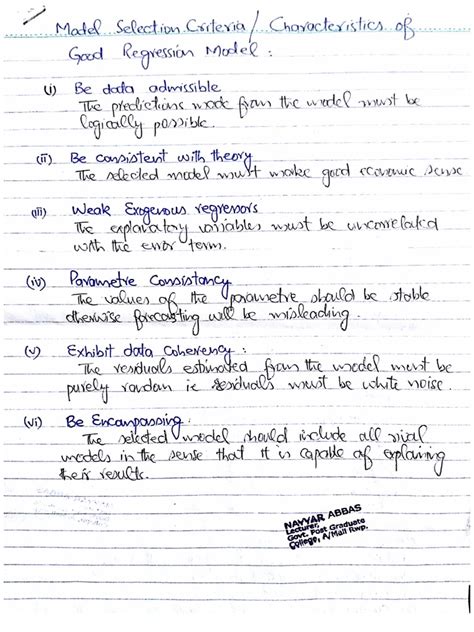 Model Selection Criteria / Characteristics of
Good Regression Model :
(i) Be data admissible
The predictions made from the model must be
logically possible.
(ii) Be consistent with theory
The selected model must make good economic sense
(iii) Weak Exogenous regressors
The explanatory variables must be uncorrelated
with the error term.
(iv) Parametre Consistancy
The values of the parametre should be stable
otherwise forecasting will be misleading.
(v) Exhibit data Coherency :
The residuals estimated from the model must be
purely random ie residuals must be white noise.
(vi) Be Encompassing.
The selected model should include all rival
models in the sense that it is capable of explaining
their results.
NAYYAR ABBAS
Lecturer,
Govt. Post Graduate
College, A/Mall Rwp.